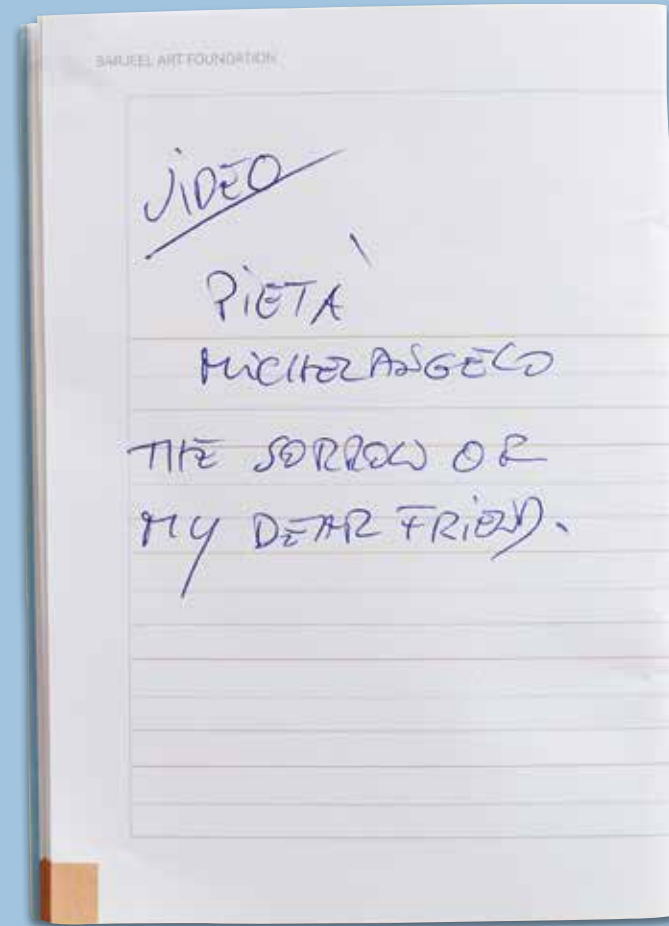 BARJEEL ART FOUNDATION
VIDEO
PIETÀ
MICHELANGELO
THE SORROW OF
MY DEAR FRIEND.